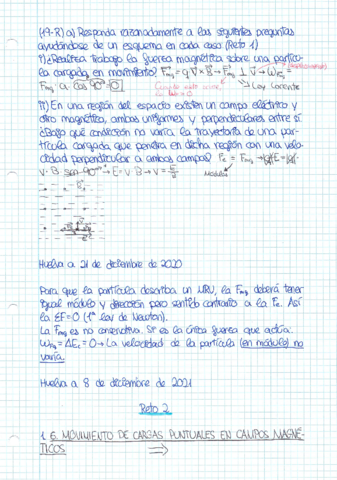 (19-R) a) Responda razonadamente a las siguientes preguntas
ayudándose de un esquema en cada caso (Reto 1)
i) ¿Realiza trabajo la fuerza magnética sobre una partícu-
la cargada en movimiento? Fmg = q·v×B → Fmg ⊥ v → WFmg =
Fmg · cos 90° = 0 Ley Lorentz
II) En una región del espacio existen un campo eléctrico y
otro magnético, ambos uniformes y perpendiculares entre sí.
¿Bajo qué condición no varía la trayectoria de una par-
tícula cargada que penetra en dicha región con una velo-
cidad perpendicular a ambos campos? Fe = Fmg → |q|·E = |q|·
v·B·sen 90° → E = v·B → v = E/B Módulos
Huelva a 21 de diciembre de 2020
Para que la partícula describa un MRU, la Fmg deberá tener
igual módulo y dirección pero sentido contrario a la Fe. Así
la ΣF=0 (1ª Ley de Newton).
La Fmg es no conservativa. Si es la única fuerza que actúa.
WFmg = ΔEc = 0 → La velocidad de la partícula (en módulo) no
varía.
Huelva a 8 de diciembre de 2021
Reto 2
1.6. MOVIMIENTO DE CARGAS PUNTUALES EN CAMPOS MAGNÉ-
TICOS